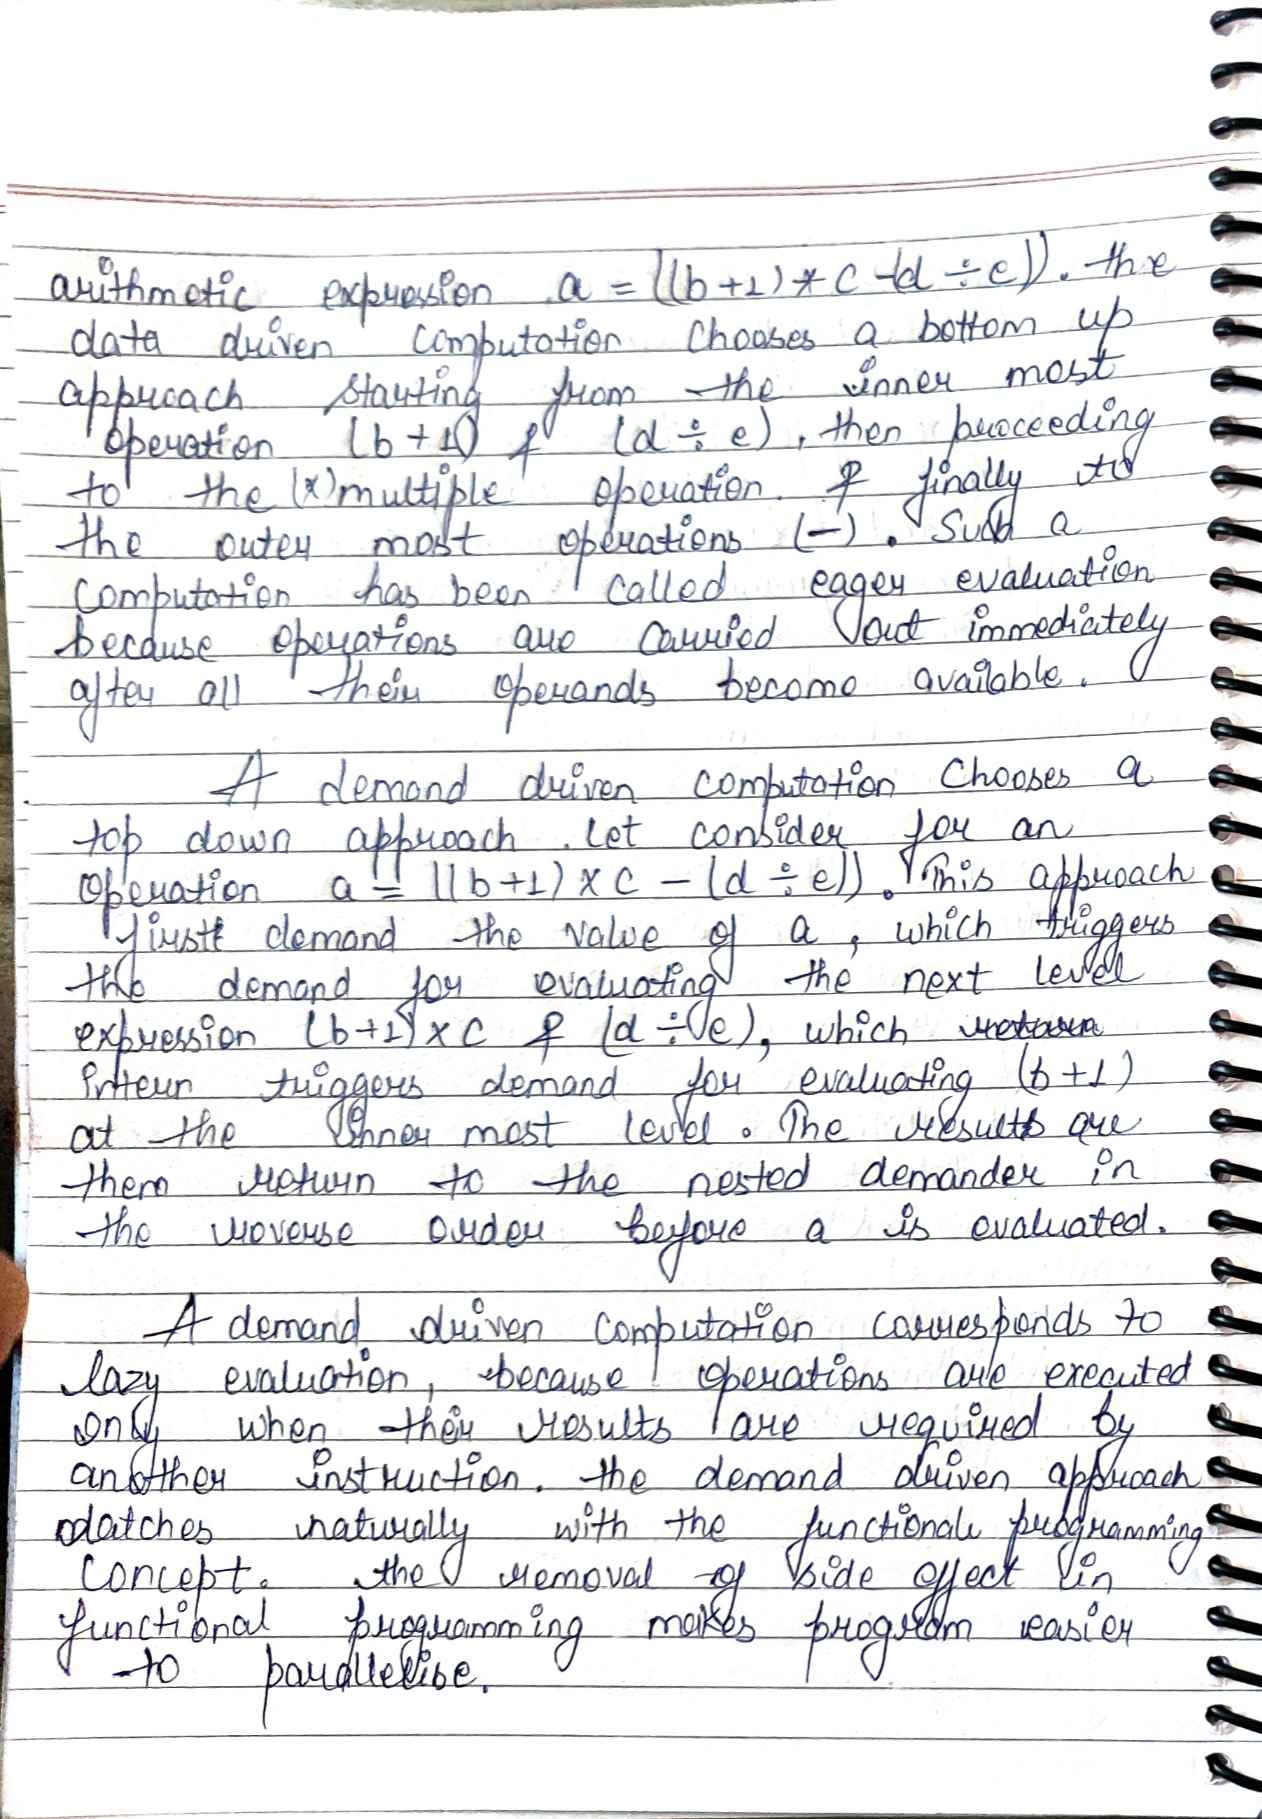 arithmetic expression a = ((b+1) * c -(d ÷ e)). the
data driven computation chooses a bottom up
approach starting from the inner most
operation (b+1) & (d ÷ e), then proceeding
to the (x) multiple operation & finally to
the outer most operations (-). Such a
computation has been called eager evaluation
because operations are carried out immediately
after all their operands become available.
A demand driven computation chooses a
top down approach. Let consider for an
operation a = ((b+1) x c - (d ÷ e)). This approach
first demand the value of a, which triggers
the demand for evaluating the next level
expression (b+1) x c & (d ÷ e), which
inturn triggers demand for evaluating (b+1)
at the inner most level. The results are
then return to the nested demander in
the reverse order before a is evaluated.
A demand driven computation corresponds to
lazy evaluation, because operations are executed
only when their results are required by
another instruction. the demand driven approach
matches naturally with the functional programming
concept. the removal of side effect in
functional programming makes program easier
to parallelise.